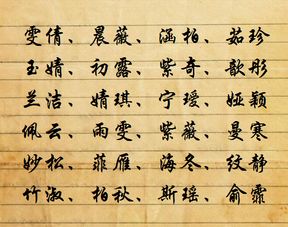 雯倩、晨薇、涵柏、茹珍
玉婧、初露、紫奇、歆彤
兰洁、婧琪、宁瑷、娅颖
佩云、雨雯、紫薇、曼寒
妙松、菲雁、海冬、纹静
竹淑、柏秋、斯瑶、俞霏